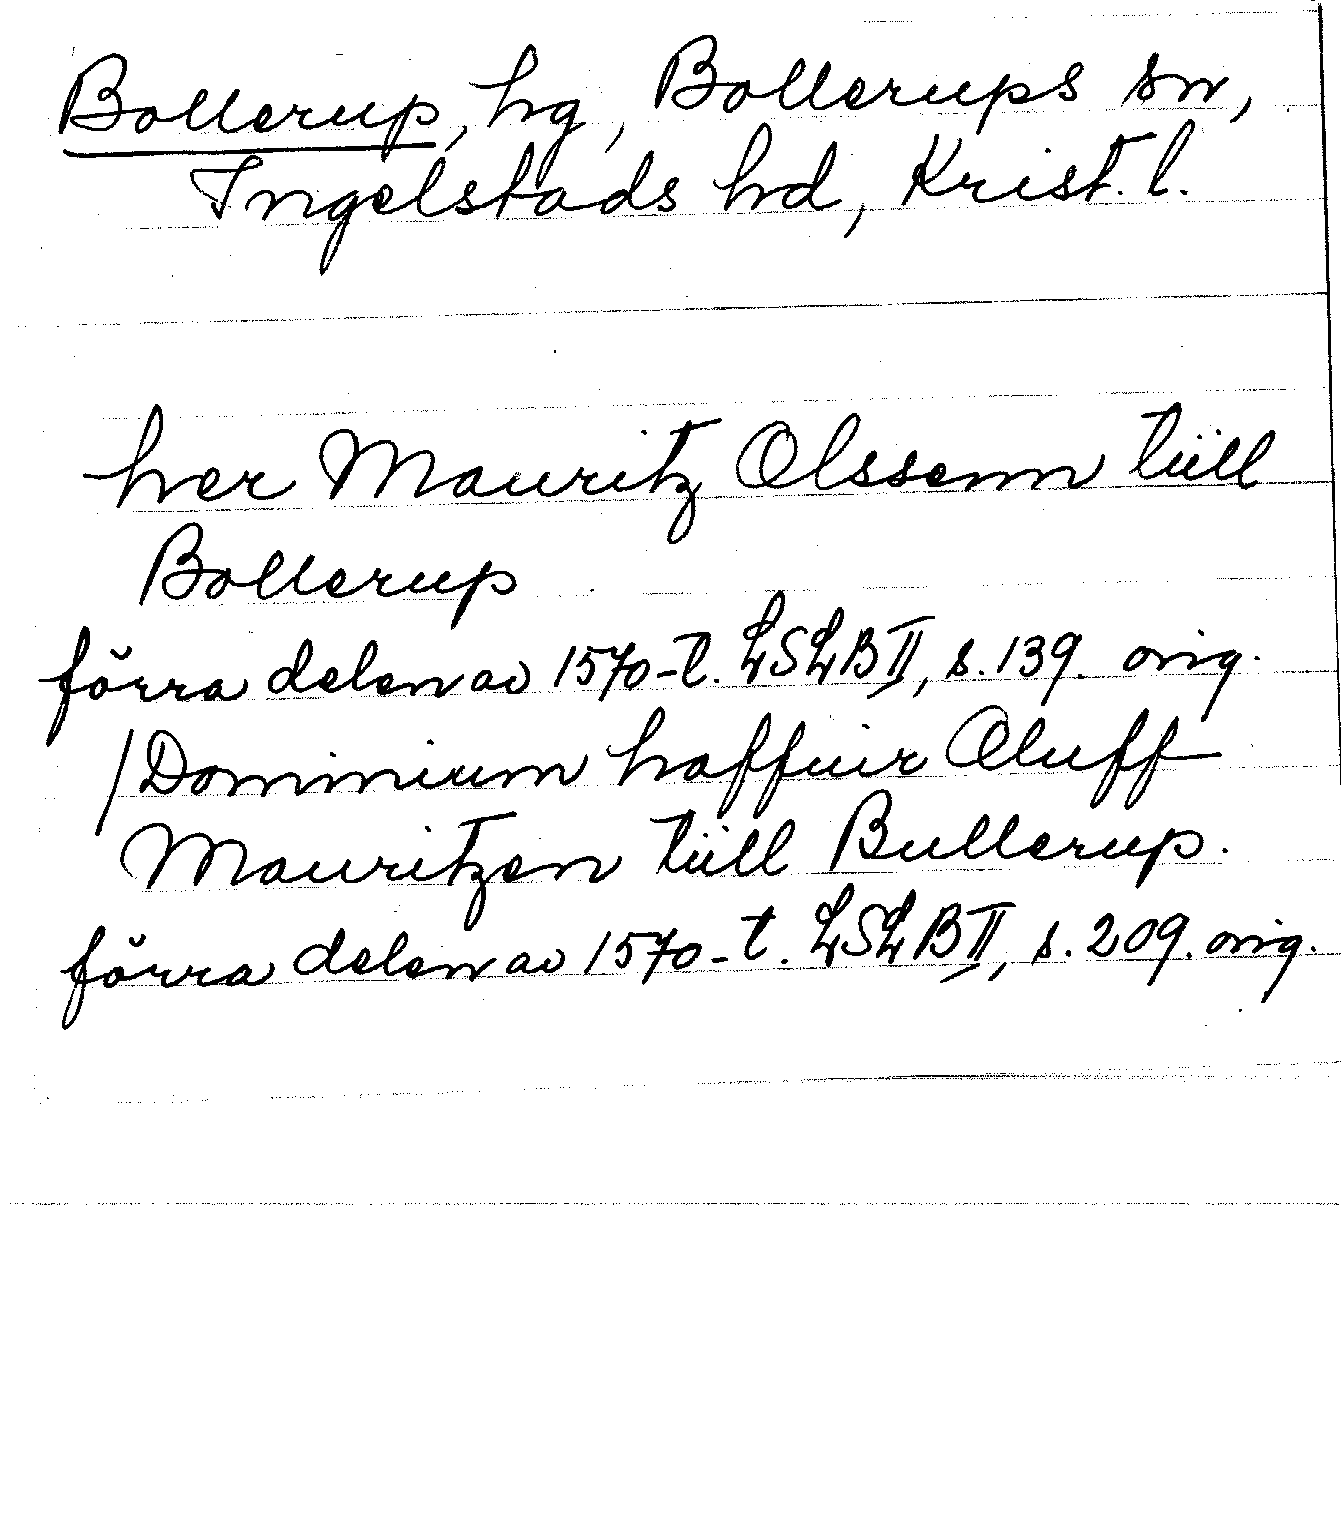 Bollerup, hg, Bollerups sn,
Ingelstads hd, Krist. l.
her Mauritz Olssenn tiill
Bollerup
förra delen av 1570-t. LSLB II, s. 139. orig.
/Dominium haffuir Oluff
Mauritzen tiill Bullerup.
förra delen av 1570-t. LSLB II, s. 209. orig.